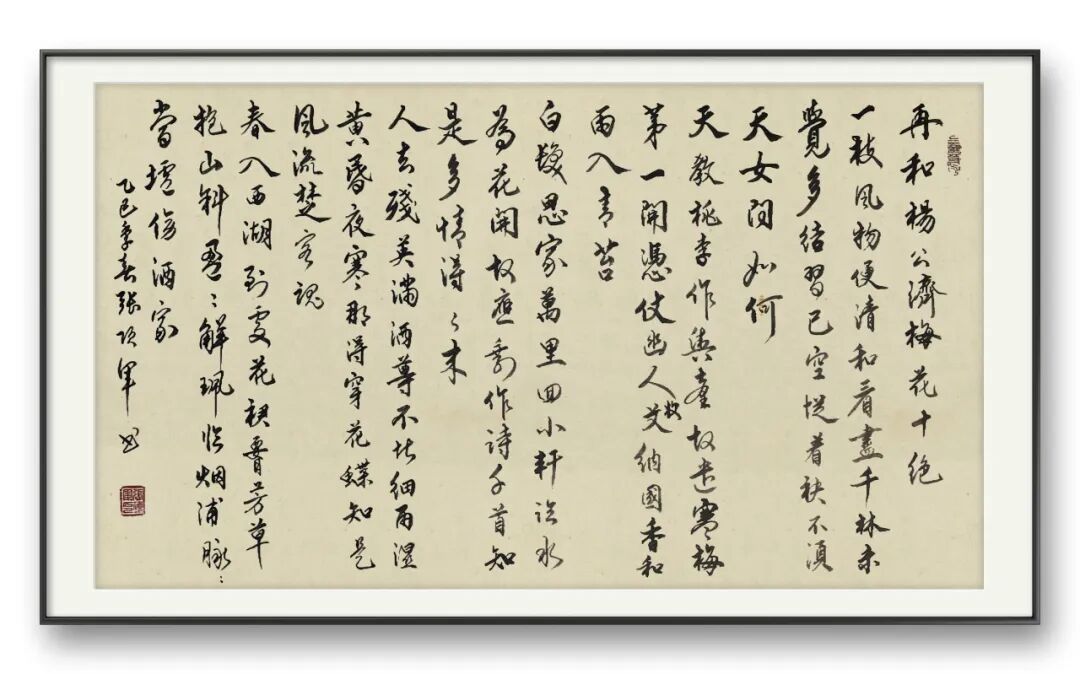 再和楊公濟梅花十絕
一枝風物便清和看盡千林未
覺多結習已空從着袂不須
天女問如何
天教桃李作輿臺故遣寒梅
第一開憑仗幽人收艾納國香和
雨入青苔
白髮思家萬里回小軒臨水
為花開故應剩作詩千首知
是多情得〻來
人去殘英滿酒尊不堪細雨濕
黃昏夜寒那得穿花蝶知是
風流楚客魂
春入西湖到處花裙腰芳草
抱山斜盈〻解珮臨烟浦脉〻
當壚傍酒家
乙巳季春張軍書